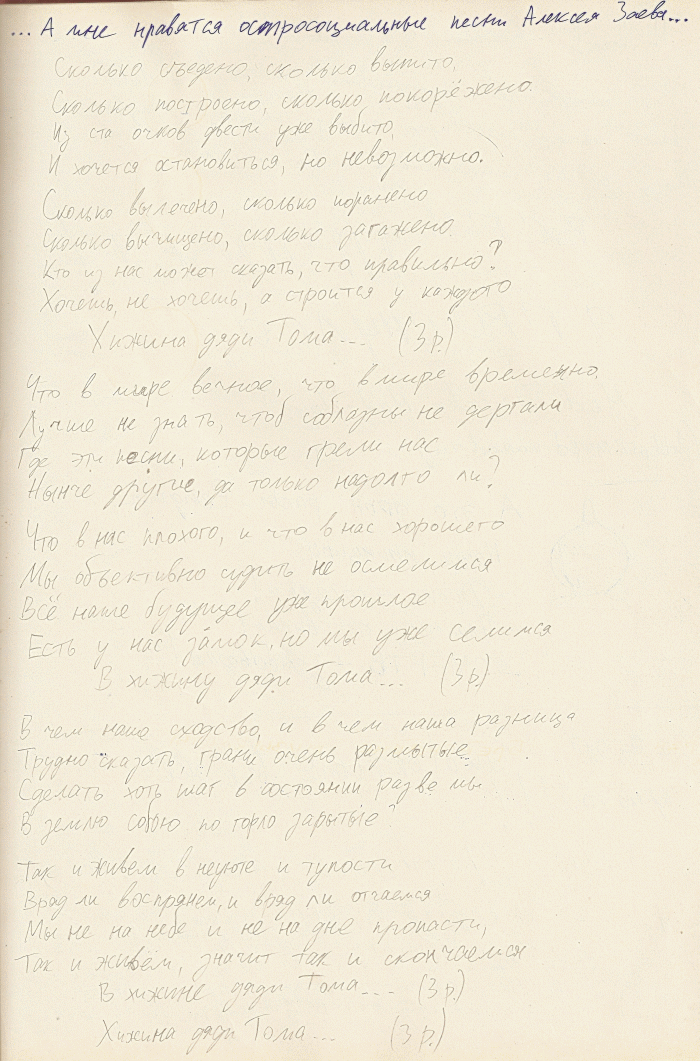 ... А мне нравятся остросоциальные песни Алексея Заева...
Сколько съедено, сколько выпито,
Сколько построено, сколько покорёжено.
Из ста очков двести уже выбито,
И хочется остановиться, но невозможно.
Сколько вылечено, сколько поранено
Сколько вычищено, сколько загажено
Кто из нас может сказать, что правильно?
Хочешь, не хочешь, а строится у каждого
Хижина дяди Тома... (3 р.)
Что в мире вечное, что в мире временно.
Лучше не знать, чтоб соблазны не дергали
Где эти песни, которые грели нас
Нынче другие, да только надолго ли?
Что в нас плохого, и что в нас хорошего
Мы объективно судить не осмелимся
Всё наше будущее уже прошлое
Есть у нас замок, но мы уже селимся
В хижину дяди Тома... (3 р.)
В чем наше сходство, и в чем наша разница
Трудно сказать, грани очень размытые..
Сделать хоть шаг в состоянии разве мы
В землю собою по горло зарытые?
Так и живем в неуюте и тупости
Вряд ли воспрянем, и вряд ли отчаемся
Мы не на небе и не на дне пропасти,
Так и живём, значит так и скончаемся
В хижине дяди Тома... (3 р.)
Хижина дяди Тома... (3 р.)